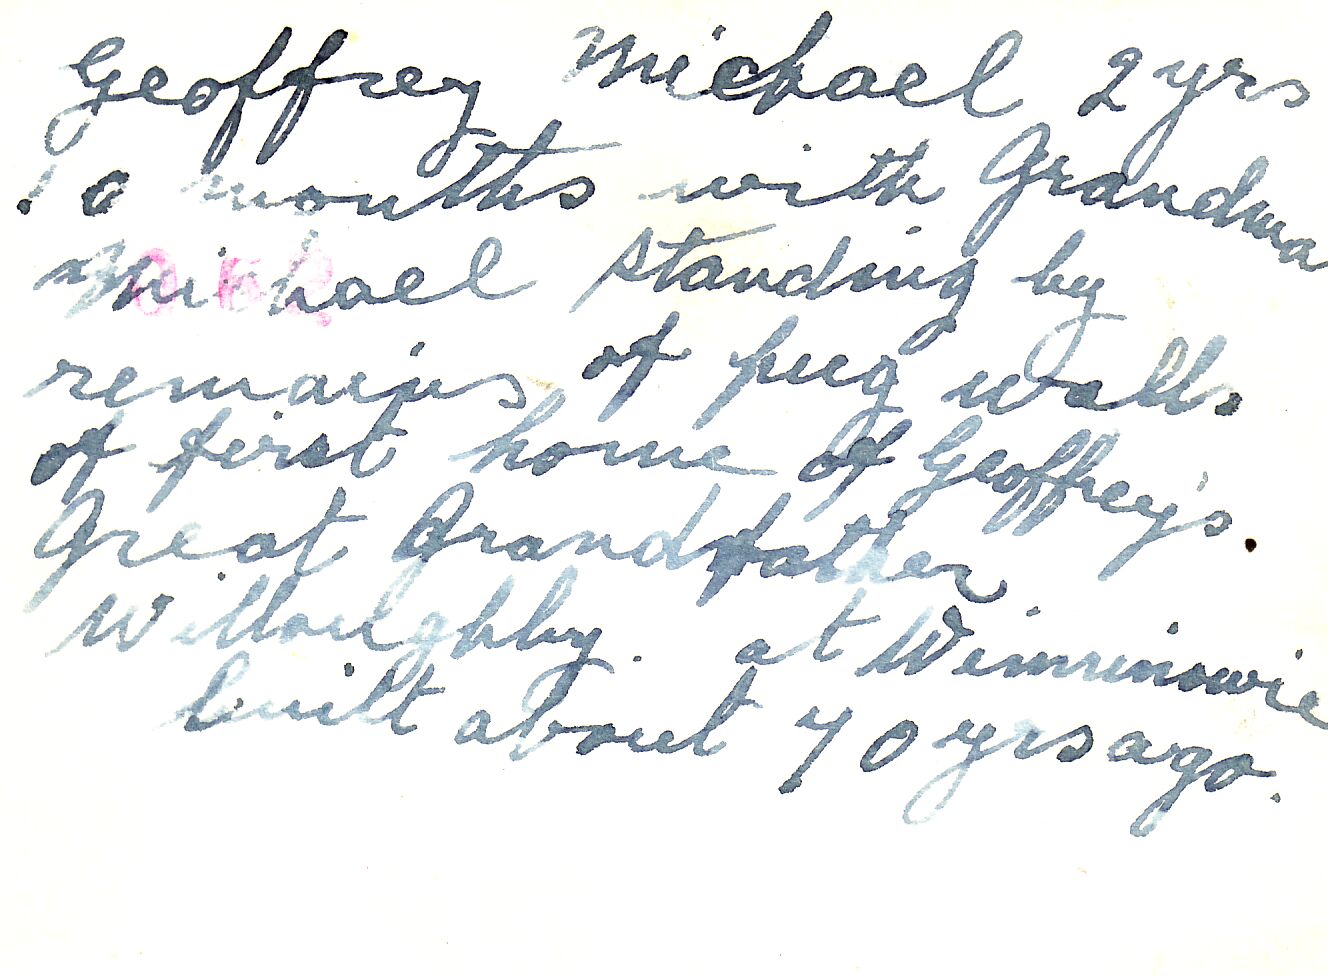 Geoffrey Michael 2 yrs
10 months with Grandma
Michael standing by
remains of pug walls
of first home of Geoffrey's.
Great Grandfather
Willoughby. at Wirrinowie
built about 70 yrs ago.